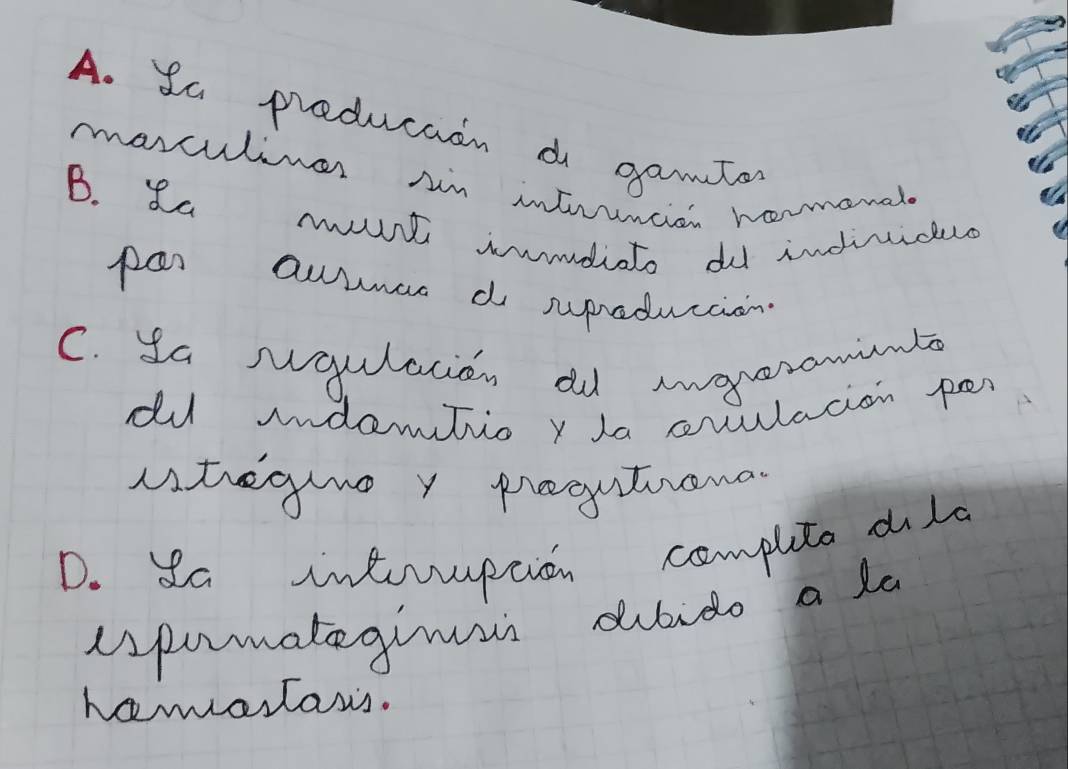 A. La producción de gametos
masculinos sin intervención hormonal.
B. La muerte inmediato del individuo
por ausencia de reproducción.
C. La regulación del engrosamiento
del endometrio y la ovulación por
estrógeno y progesterona.
D. La interrupción completa de la
espermatogénesis debido a la
homeostasis.